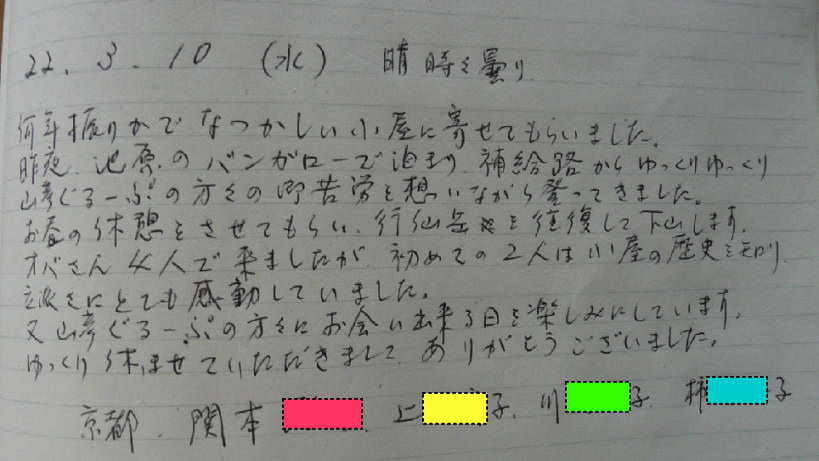 22. 3. 10 (水) 晴時々曇り
何年振りかでなつかしい小屋に寄せてもらいました。
昨夜、池原のバンガローで泊まり、補給路からゆっくりゆっくり
山彦ぐるーぷの方々の御苦労を想いながら登ってきました。
お昼の休憩をさせてもらい、行仙岳を往復して下山します。
オバさん4人で来ましたが、初めての2人は小屋の歴史を知り
立派さにとても感動していました。
又山彦ぐるーぷの方々にお会い出来る日を楽しみにしています。
ゆっくり休ませていただきまして、ありがとうございました。
京都 関本 上 子. 川 子. 柿 子